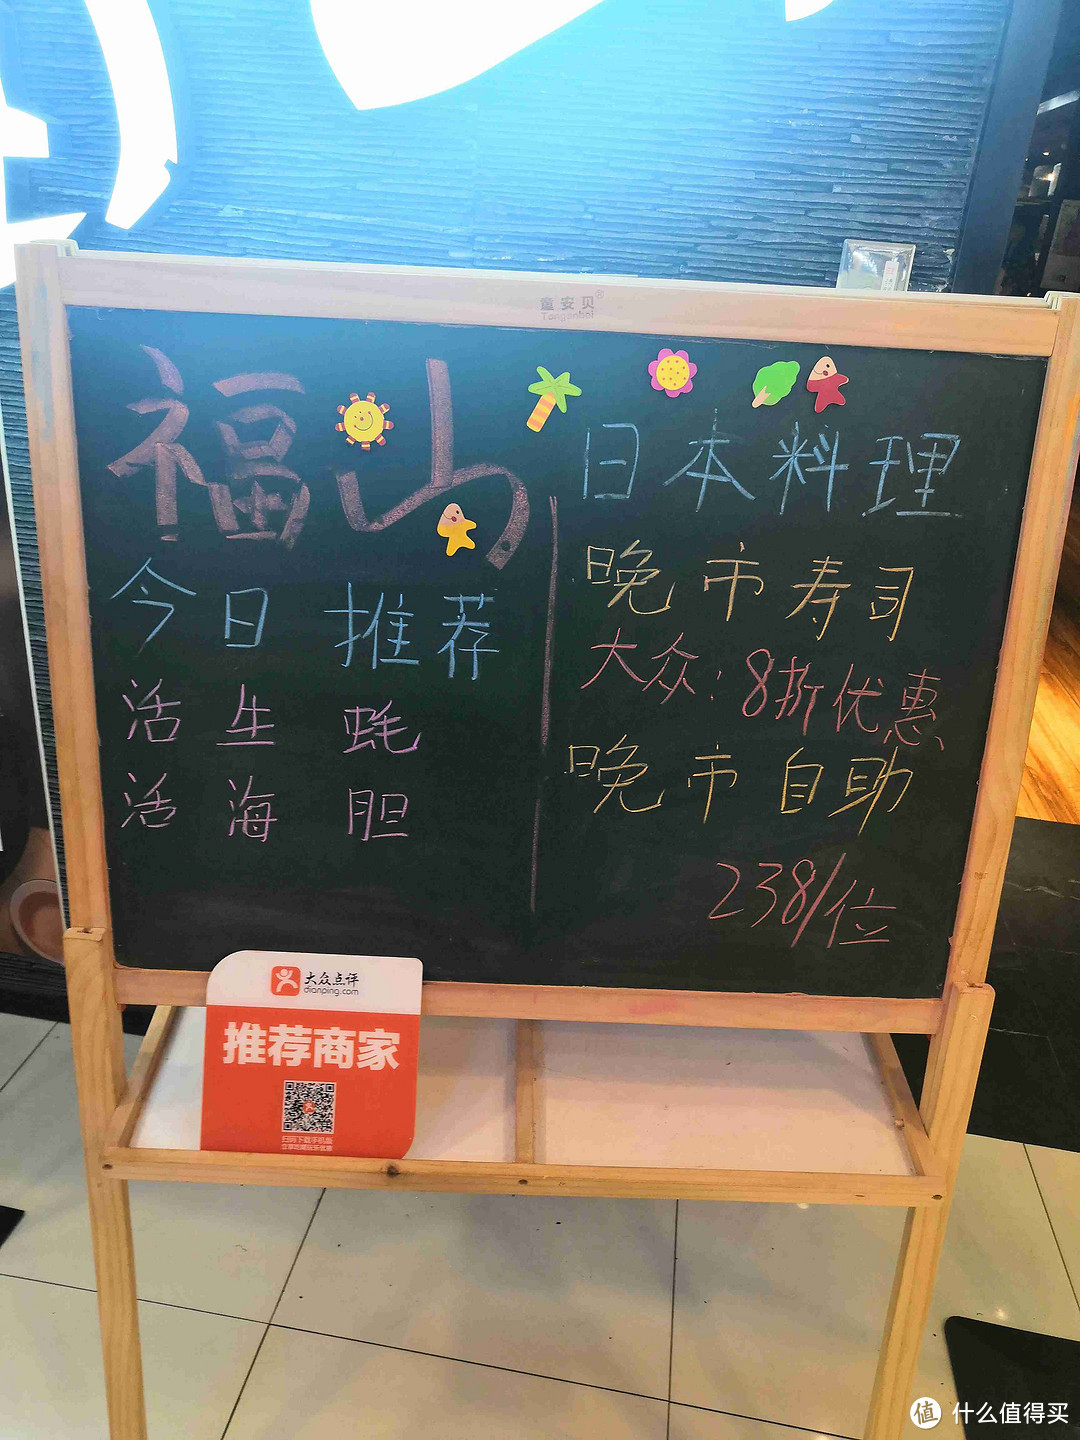 童安贝
Tonganbei
福山
日本料理
今日推荐
活生蚝
活海胆
晚市寿司
大众:8折优惠
晚市自助
238/位
大众点评
dianping.com
推荐商家
扫码下载手机版
值 什么值得买